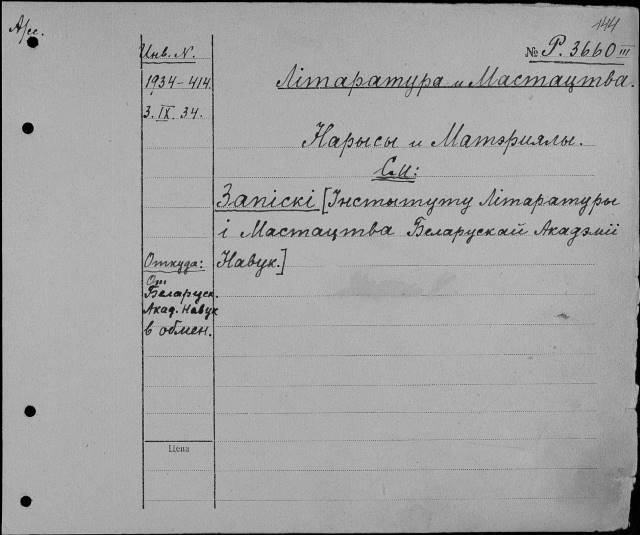 А/сс.
144
№ Р. 3660 III
Инв. N.
1934-414.
3. IX. 34.
Літаратура и Мастацтва.
Нарысы и Матэриялы.
См:
Запіскі [Інстытуту Літаратуры
і Мастацтва Беларускай Акадэміі
Навук.]
Откуда:
От
Беларуск.
Акад. Навук
в обмен.
Цена